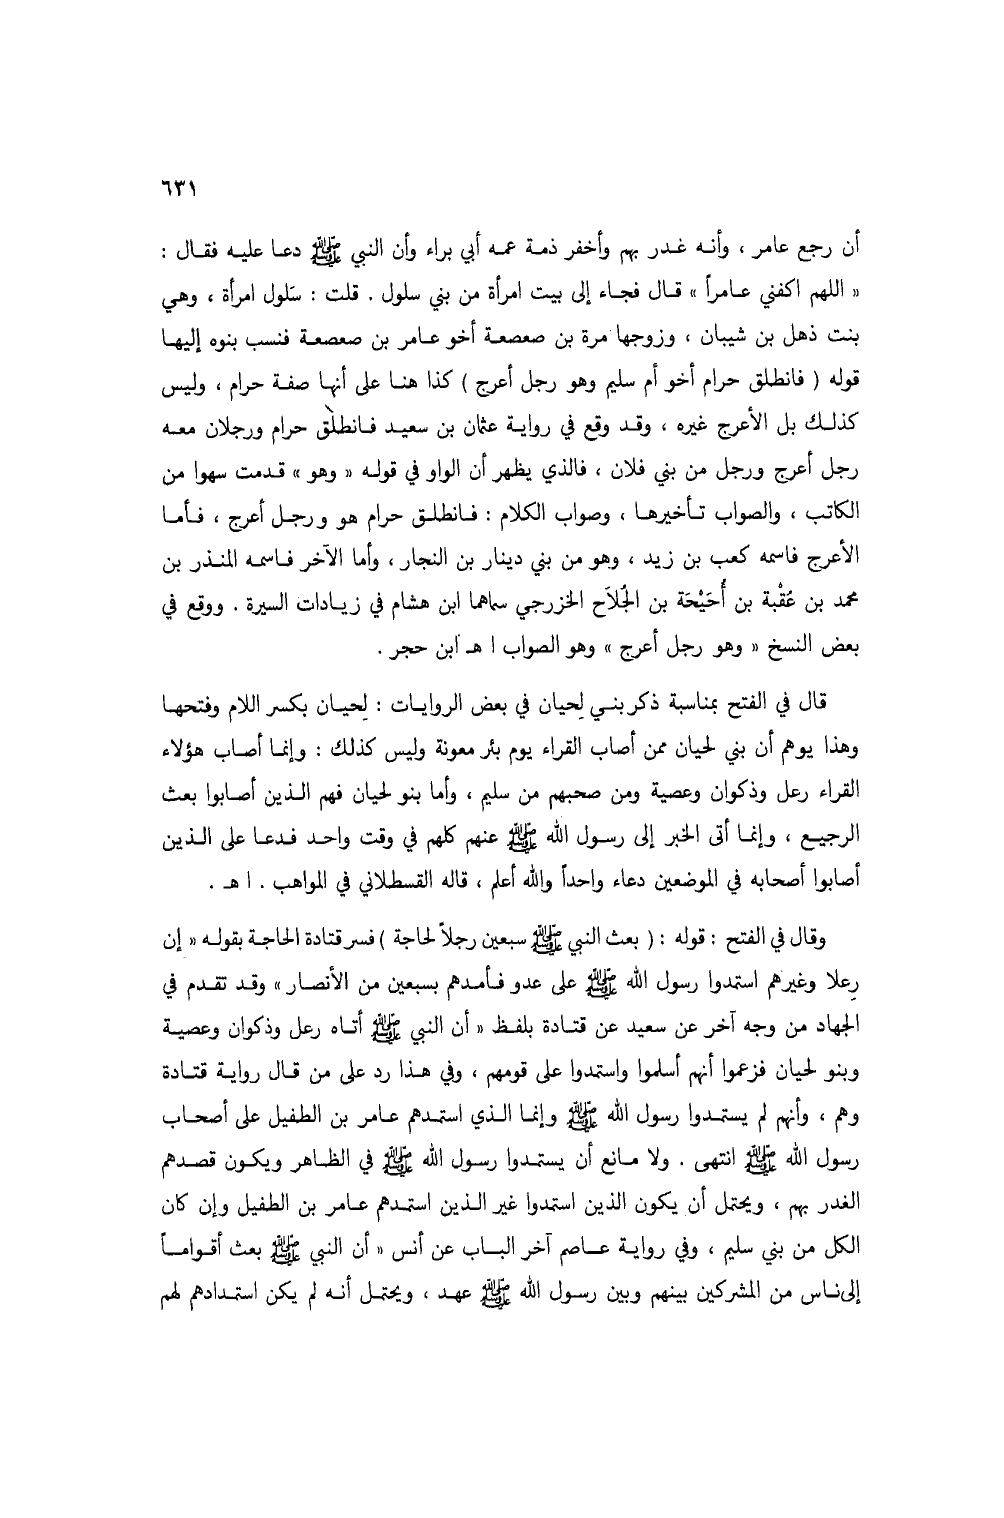 ٦٣١
أن رجع عامر ، وأنه غدر بهم وأخفر ذمة عمه أبي براء وأن النبي ﷺ دعا عليه فقال :
« اللهم اكفني عامراً » قال فجاء إلى بيت امرأة من بني سلول . قلت : سَلول امرأة ، وهي
بنت ذهل بن شيبان ، وزوجها مرة بن صعصعة أخو عامر بن صعصعة فنسب بنوه إليها
قوله ( فانطلق حرام أخو أم سليم وهو رجل أعرج ) كذا هنا على أنها صفة حرام ، وليس
كذلك بل الأعرج غيره ، وقد وقع في رواية عثمان بن سعيد فانطلق حرام ورجلان معه
رجل أعرج ورجل من بني فلان ، فالذي يظهر أن الواو في قوله « وهو » قدمت سهوا من
الكاتب ، والصواب تأخيرها ، وصواب الكلام : فانطلق حرام هو ورجل أعرج ، فأما
الأعرج فاسمه كعب بن زيد ، وهو من بني دينار بن النجار ، وأما الآخر فاسمه المنذر بن
محمد بن عُقْبة بن أُحَيْحَة بن الجُلَاح الخزرجي سماهما ابن هشام في زيادات السيرة . ووقع في
بعض النسخ « وهو رجل أعرج » وهو الصواب ا هـ ابن حجر .
قال في الفتح بمناسبة ذكر بني لِحيان في بعض الروايات : لِحيان بكسر اللام وفتحها
وهذا يوهم أن بني لحيان ممن أصاب القراء يوم بئر معونة وليس كذلك : وإنما أصاب هؤلاء
القراء رعل وذكوان وعصية ومن صحبهم من سليم ، وأما بنو لحيان فهم الذين أصابوا بعث
الرجيع ، وإنما أتى الخبر إلى رسول الله ﷺ عنهم كلهم في وقت واحد فدعا على الذين
أصابوا أصحابه في الموضعين دعاء واحداً والله أعلم ، قاله القسطلاني في المواهب . ا هـ .
وقال في الفتح : قوله : ( بعث النبي ﷺ سبعين رجلاً لحاجة ) فسر قتادة الحاجة بقوله « إن
رِعلا وغيرهم استمدوا رسول الله ﷺ على عدو فأمدهم بسبعين من الأنصار » وقد تقدم في
الجهاد من وجه آخر عن سعيد عن قتادة بلفظ « أن النبي ﷺ أتاه رعل وذكوان وعصية
وبنو لحيان فزعموا أنهم أسلموا واستمدوا على قومهم ، وفي هذا رد على من قال رواية قتادة
وهم ، وأنهم لم يستمدوا رسول الله ﷺ وإنما الذي استمدهم عامر بن الطفيل على أصحاب
رسول الله ﷺ انتهى . ولا مانع أن يستمدوا رسول الله ﷺ في الظاهر ويكون قصدهم
الغدر بهم ، ويحتمل أن يكون الذين استمدوا غير الذين استمدهم عامر بن الطفيل وإن كان
الكل من بني سليم ، وفي رواية عاصم آخر الباب عن أنس « أن النبي ﷺ بعث أقواماً
إلى ناس من المشركين بينهم وبين رسول الله ﷺ عهد ، ويحتمل أنه لم يكن استمدادهم لهم